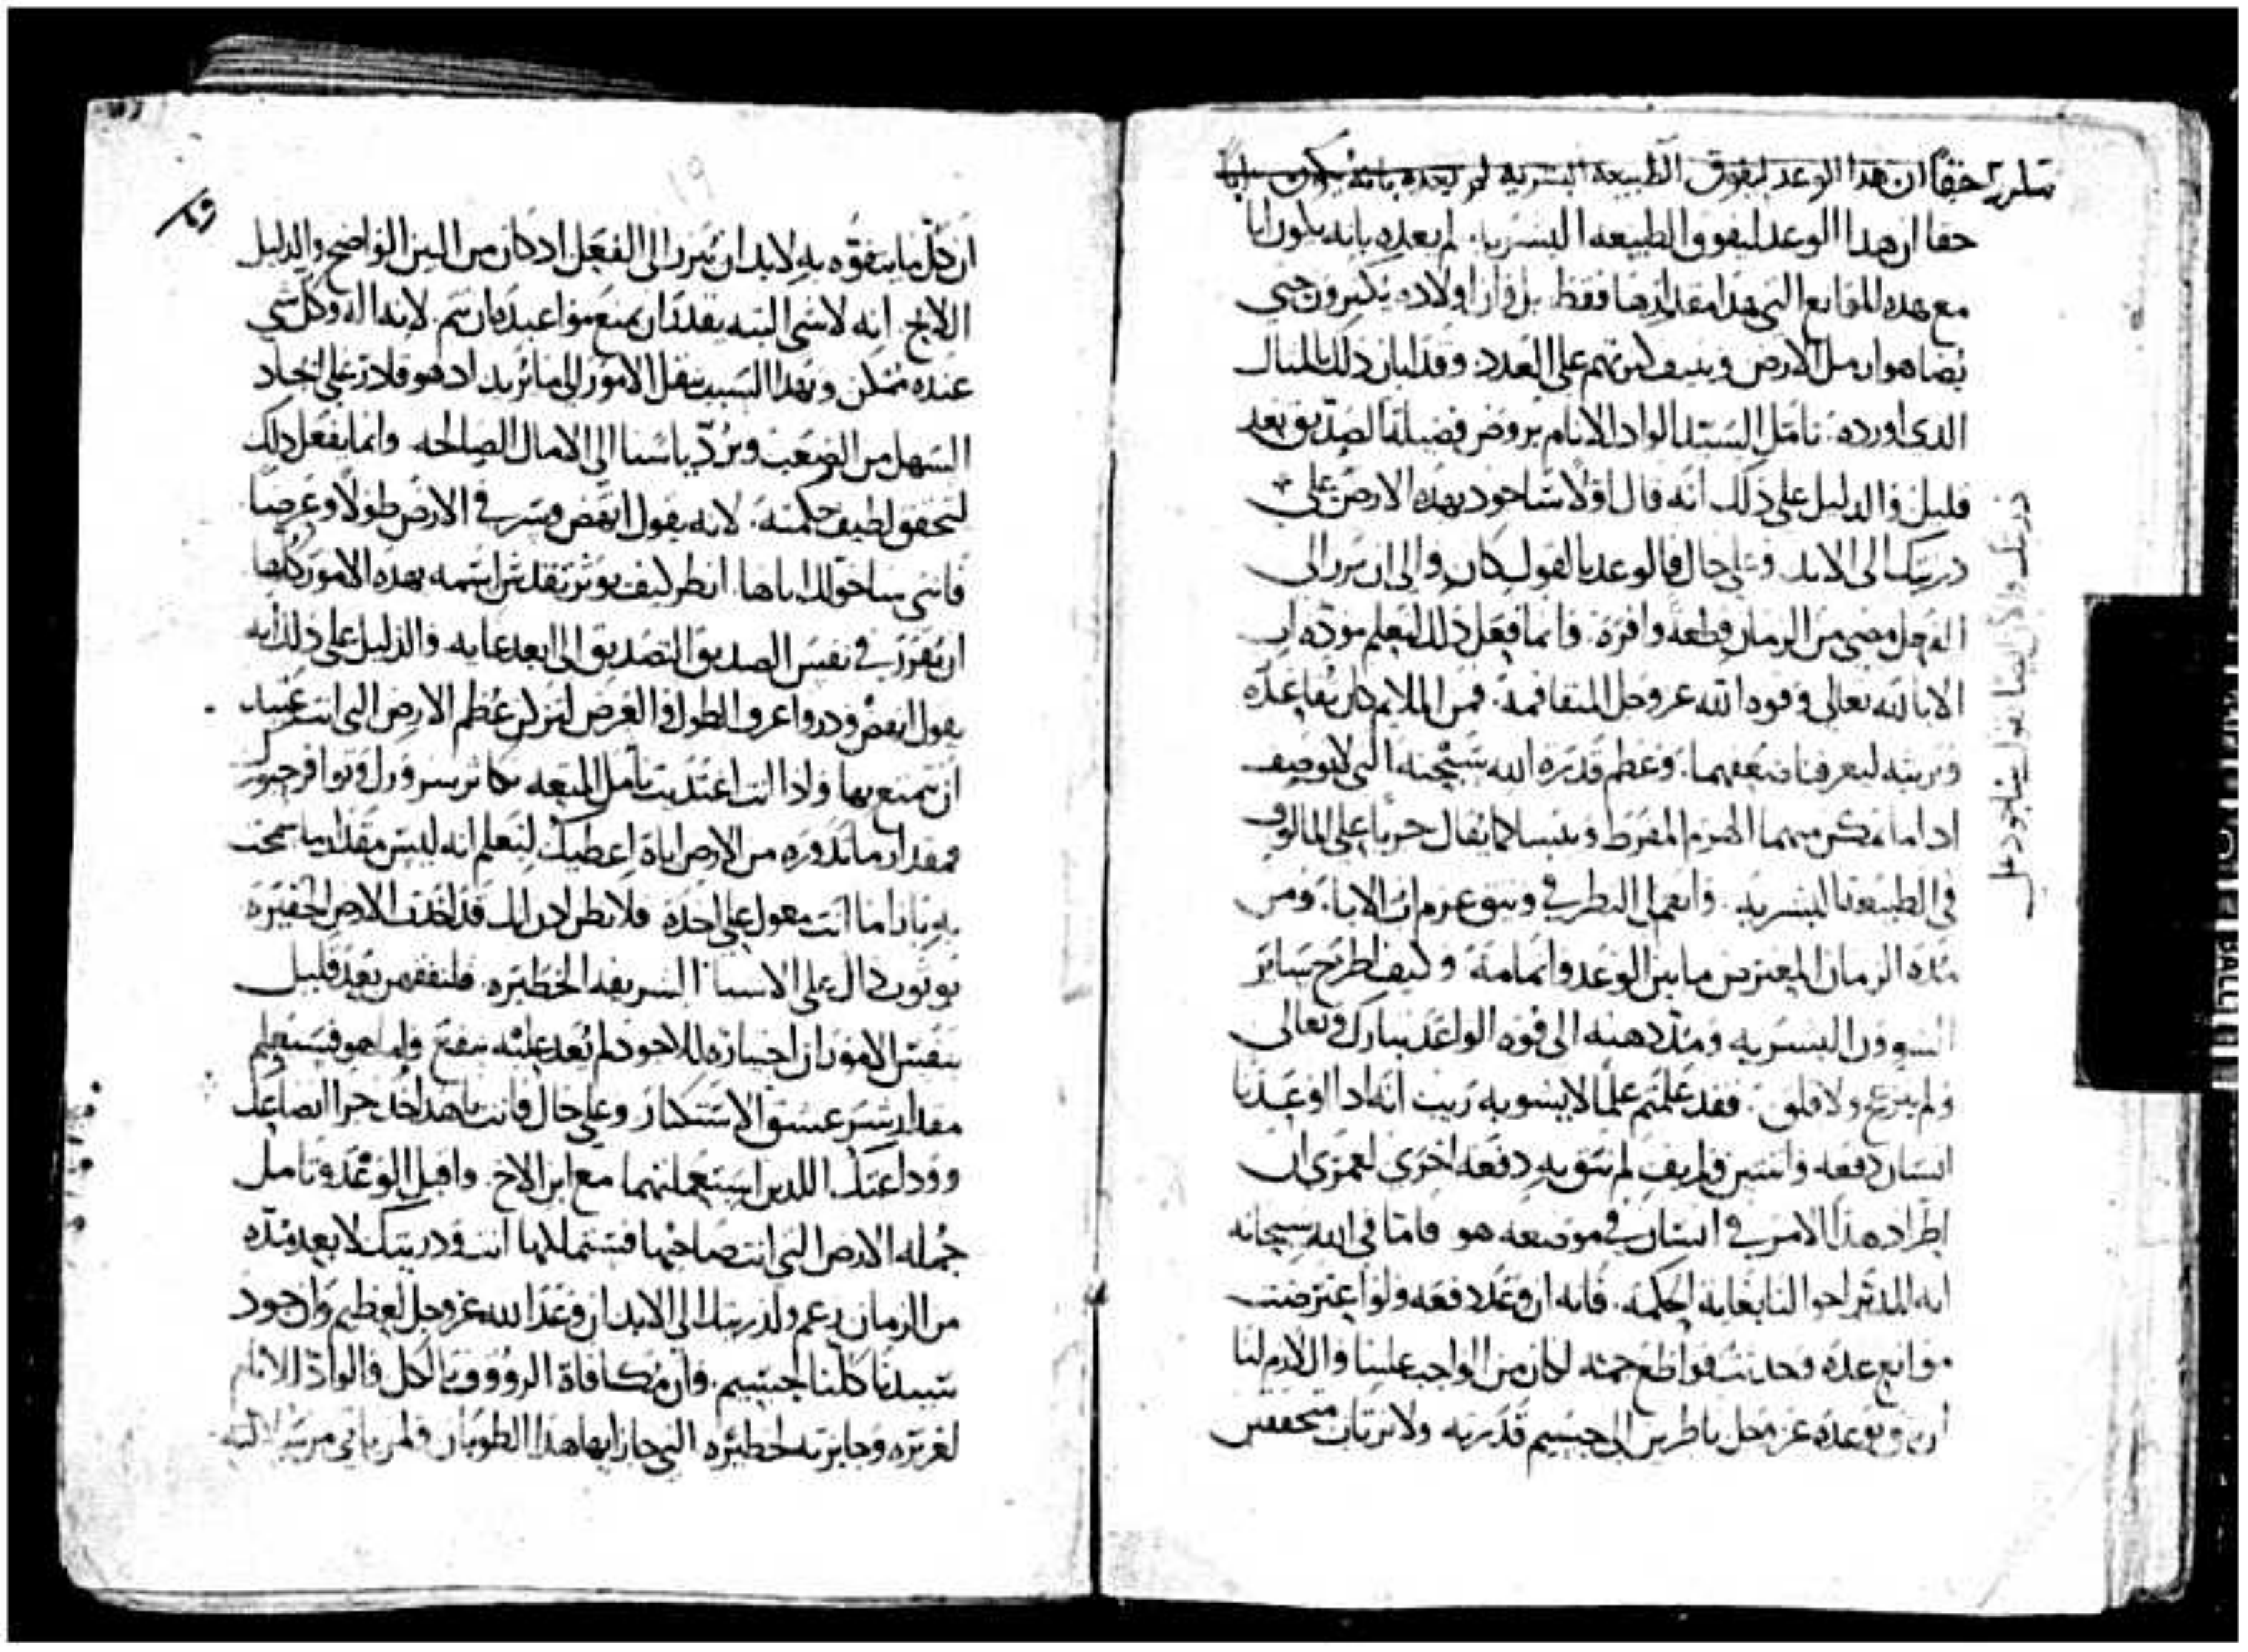 حقا ان هذا الوعد ليفوق الطبيعة البشرية لم يعده بانه يكون ابا
حقا ان هدا الوعد ليفوق الطبيعه البشريه. لم يعده بانه يكون ابا
مع هده الموانع التي هذا مقدارها فقط بل وان اولاده يكثرون حتى
يضاهوا رمل الارض وينيف كثرتهم على العدد وقد ابان ذلك بالمثال
الدى اورده. تامل السيد الواد الانام يروض فضيلة الصديق بعد
قليل والدليل على ذلك انه قال اولا ساجود بهده الارض على
دريتك الى الابد. وعلى حال فالوعد بالقول كان والى ان يبرز الى
الفعل مضى من الزمان قطعة وافرة. وانما فعل ذلك لتعلم مودة اب
الابا لله تعالى وقوه الله عز وجل المتفاقمة. فمن الملايم كان
وقرينته ليعرفا ضعفهما. وعظم قدره الله التى لا توصف
اذا ما تمكن منهما الهرم المفرط ويئسا كما يقال جريا على المالوف
فى الطبيعة البشريه. وانعم لي النظر في وثيق عزم اب الابا. ومن
مده الزمان المعترض ما بين الوعد واتمامه وكيف اطرح سائر
البشريه ومد دهنه الى قوه الواعد تبارك وتعالى
ولم يجزع ولا قلق. فقد علمتم علما لا يشوبه ريب انه اذا اوعدنا
انسان دفعه واثنتين ولم يف لم نثق به دفعه اخرى لعمري ان
اطراد هذا الامر في انسان في موضعه هو فاما في الله سبحانه
المدبر احوالنا بغاية الحكمه. فانه ان وعد دفعه ولو اعترضت
موانع عده وحدثت قواطع جمه لكان من الواجب علينا واللازم لنا
بوعده عز وجل ناظرين الى جسيم قدرته ولا نرتاب متحققين
ان كل ما يتفوه به لا بد ان يبرز الى الفعل اد كان من البين الواضح والدليل
اللايح انه لا شى البته يقدر ان يمنع مواعيده ان تتم. لانه اله وكل شي
عنده ممكن وبهذا السبب ينقل الامور الى ما يريد اد هو قادر على ايجاد
السهل من الصعب ويرد ياسنا الى الامال الصالحه وانما يفعل ذلك
لنتحقق لطيف حكمته. لانه يقول انهض وسر في الارض طولا وعرضا
فانني ساخولك اياها. انظر كيف يوثر تقدس اسمه بهده الامور كلها
ان يقرر في نفس الصديق التصديق الى ابعد غايه والدليل على ذلك انه
يقول انهض ودر واعرف الطول والعرض لترى كم عظم الارض التى انت عتيد
ان تتمتع بها واذا انت اغتديت بامل المتعه تكاثر سرورك وتوافر حبورك
فمقدار ما تدوره من الارض اياه اعطيك لتعلم انه ليس مقدار ما سمحت
به بازا ما انت معول على اخده فلا تظن ادن انك قد اخدت الارض الحقيره
على الاسيا الشريفه الخطيره. فلتفهمن بعد قليل
بنفس الامور ان اختياره للاجود لم يعد عليه بنفع واما هو فسيتعلم
مقدار شر عشق الاستكثار وعلى حال فانت يا هذا خد جزا اتضاعك
ووداعتك اللذين استعملتهما مع ابن الاخ. واقبل الوعد وتامل
جمله الارض التى انت صاحبها فستملكها انت ودريتك لا بعد مده
من الزمان نعم ولدريتك الى الابد ان وعد الله عز وجل لعظيم وان جود
سيدنا كلنا لجسيم. وان مكافاة الرووف بالكل والواد للانام
لغزيره وجايزته لخطيره التي جازا بها هذا الطوبان